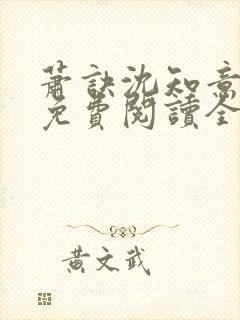 蕭訣沈知意
免費閱讀全
黃文武